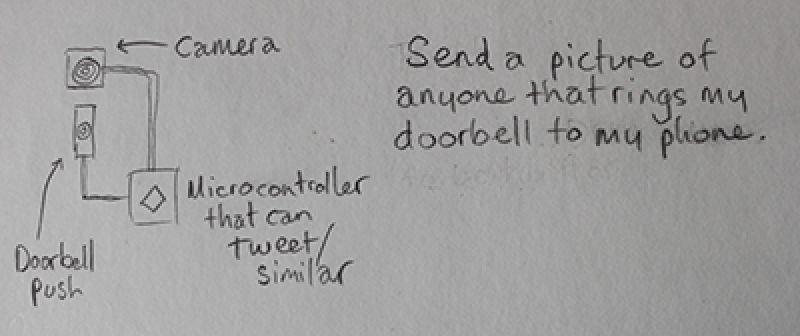 Camera
Send a picture of
anyone that rings my
doorbell to my phone.
Microcontroller
that can
tweet/
similar
Doorbell
Push